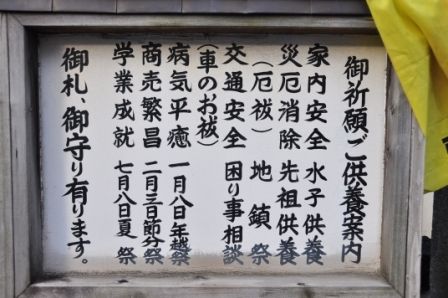 御祈願ご供養案内
家内安全 水子供養
災厄消除 先祖供養
(厄祓) 地鎮祭
交通安全 困り事相談
(車のお祓)
病気平癒 一月八日年越祭
商売繁昌 二月三日節分祭
学業成就 七月八日夏祭
御札、御守り有ります。